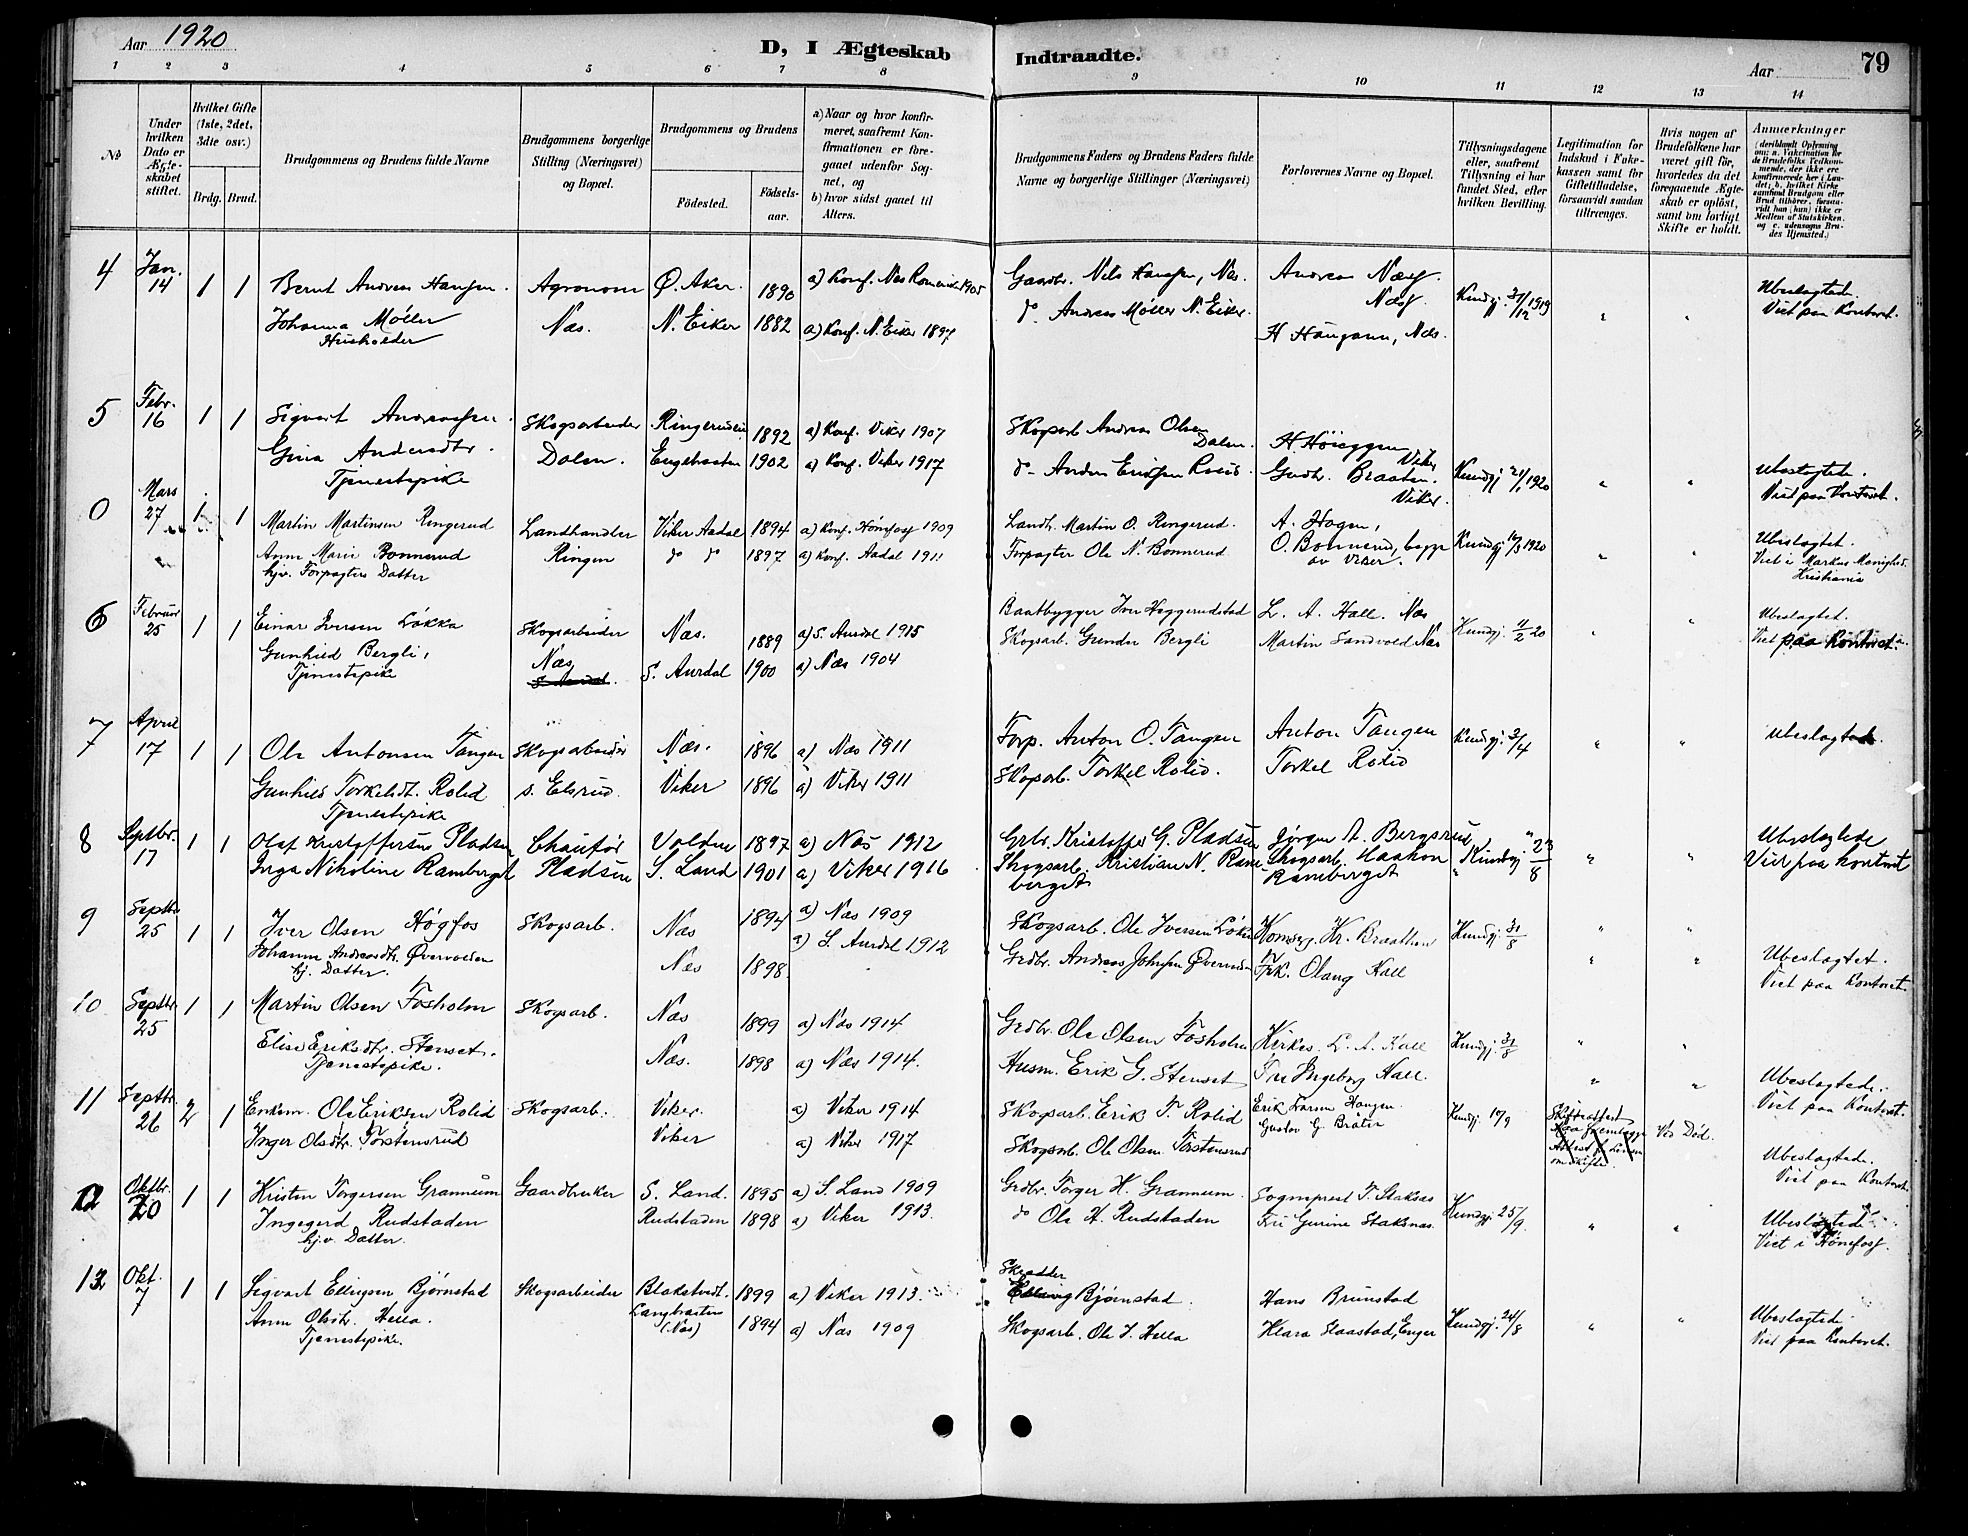 Aar 1920
D, I Ægteskab Indtraadte.
Aar
79
1 2 3 4 5 6 7 8 9 10 11 12 13 14
No
Under hvilken Dato er Ægteskabet stiftet.
Hvilket Gifte (1ste, 2det, 3dte osv.)
Brdg. Brud.
Brudgommens og Brudens fulde Navne
Brudgommens borgerlige Stilling (Næringsvei) og Bopæl.
Brudgommens og Brudens
Fødested.
Fødselsaar.
a) Naar og hvor konfirmeret, saafremt Konfirmationen er foregaaet udenfor Sognet, og
b) hvor sidst gaaet til Alters.
Brudgommens Faders og Brudens Faders fulde Navne og borgerlige Stillinger (Næringsvei)
Forlovernes Navne og Bopæl.
Tillysningsdagene eller, saafremt Tillysning ei har fundet Sted, efter hvilken Bevilling.
Legitimation for Indskud i Fakekassen samt for Giftetilladelse, forsaavidt saadan tiltrænges.
Hvis nogen af Brudefolkene har været gift før, hvorledes da det foregaaende Ægteskab er opløst, samt om lovligt Skifte er holdt.
Anmærkninger (deriblandt Oplysning om: a. Vakcination for de Brudefolks Vedkommende, der ikke ere konfirmerede her i Landet, b. hvilket Kirkesamfund Brudgom eller Brud tilhører, forsaavidt han (hun) ikke er Medlem af Statskirken, og c. udensogns Brudes Hjemsted.)
4 Jan. 14 1 1 Bernt Andreas Hansen Agronom Ø. Aker 1890 a) Konf. Nes Romerike 1905 Gaardbr. Nils Hansen, Næs. Andreas Næss Kundgj. 31/12 1919 " " Ubeslagtede.
Johanna Møller Næs. N. Eiker 1882 a) Konf. N. Eiker 1897 do Andreas Møller N. Eiker. Næss. Viet paa Kontoret.
Husholder H Haugann, Næs.
5 Febr. 16 1 1 Sigvart Andreassen Skogsarbeider 1892 a) Konf. Viker 1907 Skogarb Andreas Olsen Dalen. H Høieggen Viker
Gina Andersdtr. Dalen. 1902 a) Konf. Viker 1917 do Anders Gudbr. Braaten. Viker. Kundgj 21/1 1920 " " Ubeslagtede.
Tjenestepike Viet paa Kontoret.
0 Mars 27 1 1 Martin Martinsen Ringerud Landhandler Viker Aadal 1894 a) Konf. Hønefoss 1909 Landh. Martin O. Ringerud. A. Hagen,
Anne Marie Bonnerud Ringen do do 1897 a) Konf. Aadal 1911 Forpagter Ole N. Bonnerud O. Bonnerud, begge av Viker. Kundgj 10/3 1920 " " Ubeslagtet.
hjv. Forpagters Datter Viet i Markus Menighed. Kristiania
6 Februar 25 1 1 Einar Iversen Løkka Skogsarbeider Næs. 1889 a) S. Aurdal 1915 Baatbygger Iver Heggerudstad L. A. Hall. Næs Ubeslagtet.
Gunhild Bergli, Næs S. Aurdal 1900 a) Næs 1904 Skogsarb. Gunder Bergli Martin Sandvold Næs Kundgj. 11/2 20 " " Viet paa Kontoret.
Tjenestepike
7 April 17 1 1 Ole Antonsen Tangen Skogsarbeider Næs. 1896 a) Næs 1911 Forp. Anton O. Tangen Anton Tangen Kundgj. 3/4 " " Ubeslagtede.
Gunhild Torkeldt. Rolid s. Elsrud. Viker 1896 a) Viker 1911 Skogarb. Torkel Rolid. Torkel Rolid
Tjenestepike
8 Septbr. 17 1 1 Olaf Kristoffersen Pladsen Chaufør Valdres 1897 a) Næs 1912 Grbr. Kristoffer G. Pladsen Jørgen A. Bergsrud Ubeslegtede
Inga Nikoline Ramberget Pladsen S. Land 1901 a) Viker 1916 Skogsarb. Kristian N. Ramberget Skogsarb. Haakon Ramberget Kundgj 23/8 " " Viet paa kontoret
9 Septbr. 25 1 1 Iver Olsen Høgfos Skogsarb. Næs 1894 a) Næs 1909 Skogsarb. Ole Iversen Løken Kr. Braathen Kundgj. 31/8 " "
Johanne Andreasdtr. Øvervolden Næs 1898. a) S. Aurdal 1912 Grdbr. Andreas Johnsen Øvervolden Frk. Olaug Hall " " Ubeslagtet.
hj. Datter. Viet paa Kontoret.
10 Septbr. 25 1 1 Martin Olsen Fosholm Skogsarb. Næs 1899 a) Næs 1914 Grdbr. Ole Olsen Fosholm Kirkes. L. A. Hall Kundgj. 31/8 " "
Elise Eriksdtr. Stenset. Næs. 1898 a) Næs 1914. Husm. Erik G. Stenset Fru Ingeborg Hall. " " Ubeslagtede.
Tjenestepike. Viet paa Kontoret.
11 Septbr. 26 2 1 Enkem. Ole Eriksen Rolid Skogsarb. Viker. a) Viker 1914 Skogsarb. Erik T. Rolid Erik Larsen Haugen Kundgj. 10/9 Skifteattest Ved Død.
Inger Olsdtr. Torstensrud Viker a) Viker 1917 Skogsarb. Ole Olsen Torstensrud Gustav G. Bråten Ubeslagtede.
Viet paa Kontoret.
12 Oktbr. 20 1 1 Kristen Torgersen Grannum Gaardbruker S. Land. 1895 a) S. Land 1909 Grdbr. Torger H. Grannum Sogneprest T. Staksnæs Kundgj. 25/9. " " Ubeslagtede
Ingegerd Rudstaden Rudstaden 1898 a) Viker 1913. do Ole H. Rudstaden Fru Gurine Staksnæs. Viet i Hønefoss.
hj.v. Datter.
13 Okt. 7 1 1 Sigvart Ellingsen Bjørnstad Skogsarbeider 1899 a) Viker 1913. Skrædder Bjørnstad. Hans Brunstad Kundgj. 24/8 " " Ubeslagtede.
Anne Olsdtr. Hella. Langbraaten (Næs) 1894 a) Næs 1909 Skogsarb. Ole J. Hella Klara Haastad, Enger Viet paa Kontoret.
Tjenestepike.